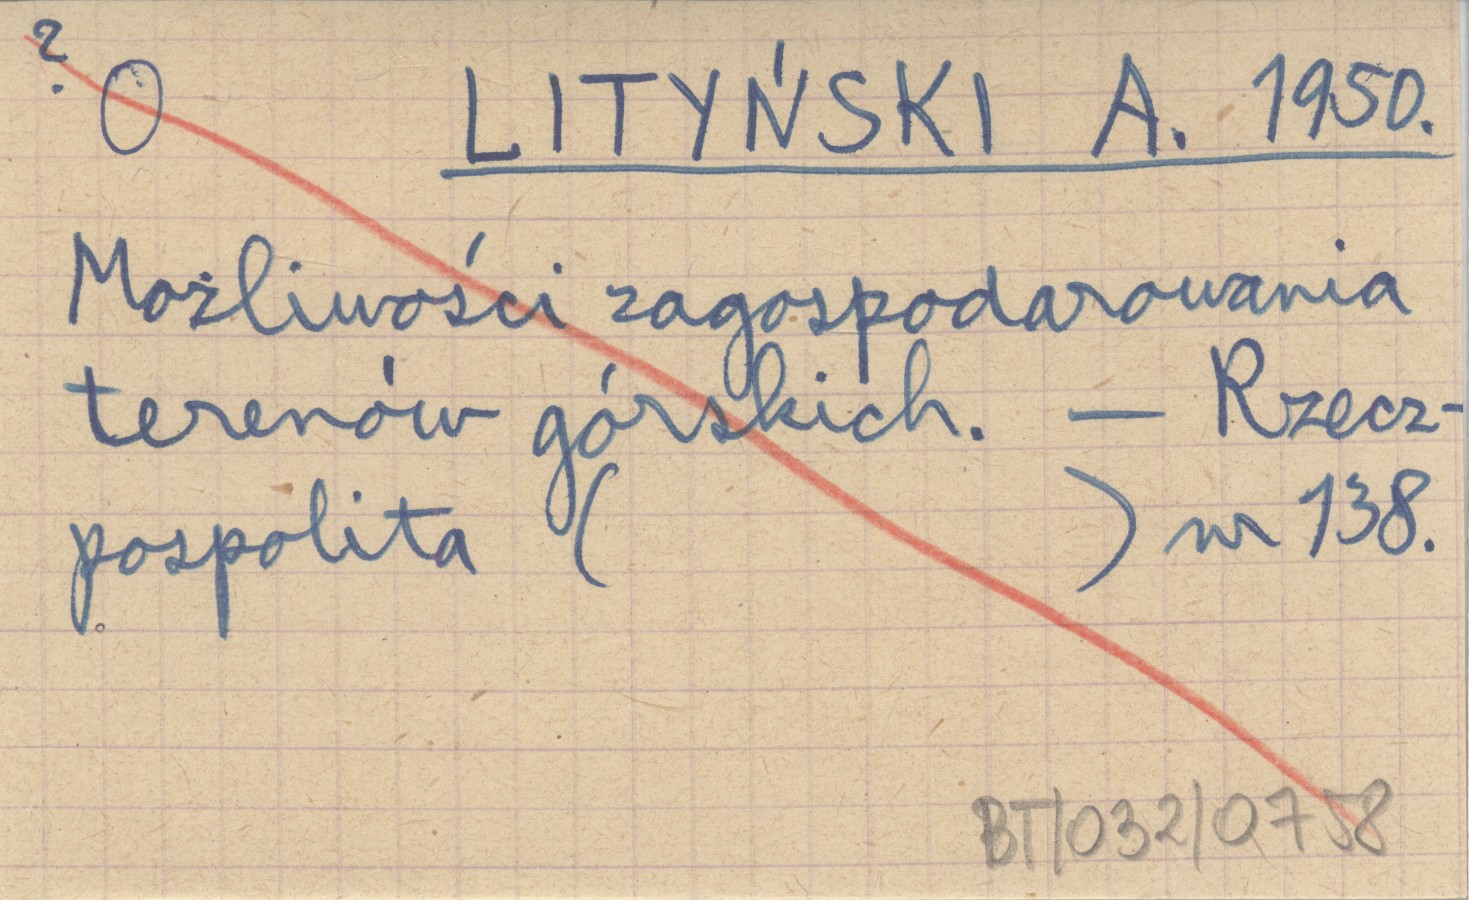 ?
O LITYŃSKI A. 1950.
Możliwości zagospodarowania
terenów górskich. — Rzecz-
pospolita ( ) nr 138.
BT/032/0758